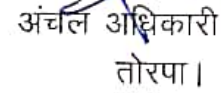 अंचल अधिकारी
तोरपा।